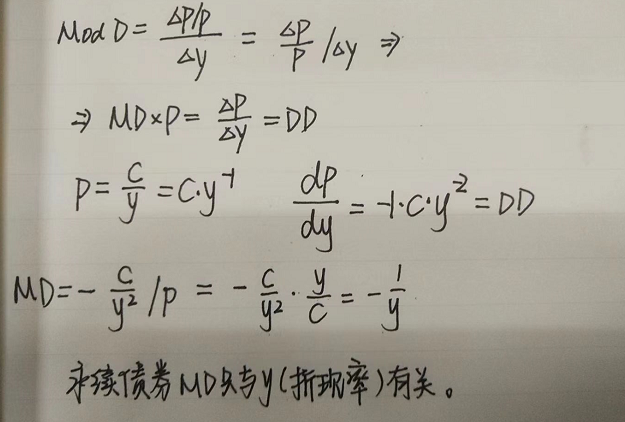 Mod D = (ΔP/P)/Δy = ΔP/P /Δy ⇒
⇒ MD×P = ΔP/Δy = DD
P = C/y = C·y⁻¹ dP/dy = -1·C·y⁻² = DD
MD = - C/y² /P = - C/y² · y/C = - 1/y
永续债券MD只与y(折现率)有关。